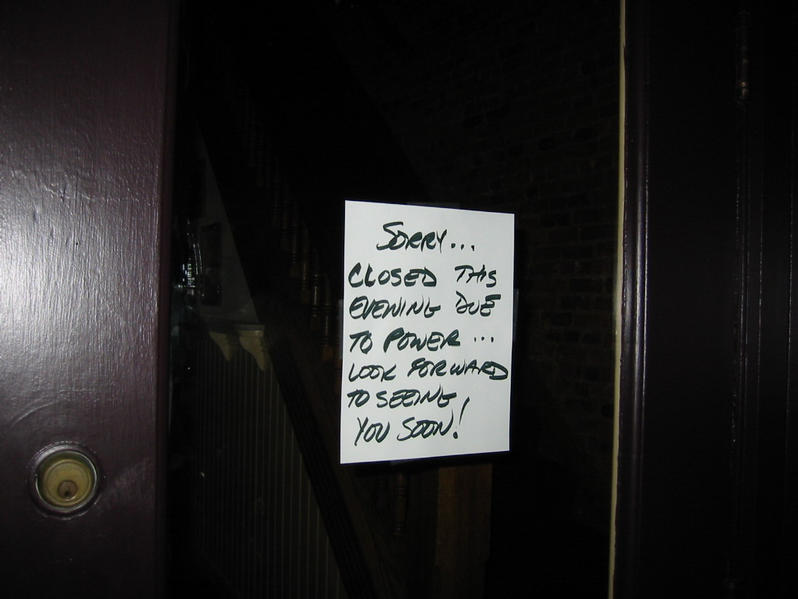 SORRY...
CLOSED THIS
EVENING DUE
TO POWER...
LOOK FORWARD
TO SEEING
YOU SOON!